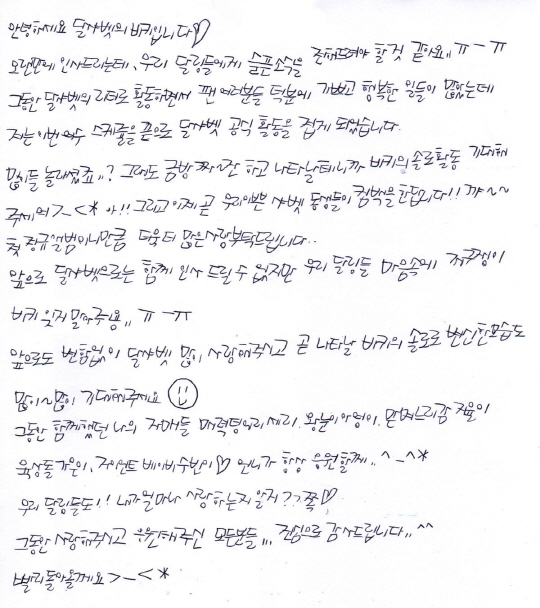 안녕하세요 달샤벳의 비키입니다♡
오랜만에 인사드리는데, 우리 달링들에게 슬픈소식을 전해드려야 할것 같아요,, ㅠ-ㅠ
그동안 달샤벳의 리더로 활동하면서 팬 여러분들 덕분에 기쁘고 행복한 일들이 많았는데
저는 이번여수 스케줄을 끝으로 달샤벳 공식 활동을 접게 되었습니다.
많이들 놀래셨죠,,? 그래도 금방 짜~잔 하고 나타날테니까 비키의 솔로활동 기대해
주세여>_<* 아!! 그리고 이제 곧 우리이쁜 샤벳 동생들이 컴백을 한답니다!! 꺄~~
첫 정규앨범이니만큼 더욱더 많은사랑부탁드립니다..
앞으로 달샤벳으로는 함께 인사 드릴 수 없지만 우리 달링들 마음속에
비키 잊지 말아주용,, ㅠ-ㅠ
앞으로도 변함없이 달샤벳 많이 사랑해주시고 곧 나타날 비키의 솔로로 변신한모습도
많이~많이 기대해주세요 ☺
그동안 함께했던 나의 저매들 매력덩어리세리, 왕눈이아영이, 만벼느리감 지율이
육상돌가은이, 자이언트 베이비수빈이♡ 언니가 항상 응원할께,, ^_^*
우리 달링들도!! 내가얼마나 사랑하는지 알지??쪽♡
그동안 사랑해주시고 응원해주신 모든분들,,, 진심으로 감사드립니다,, ^^
빨리돌아올께요>_<*